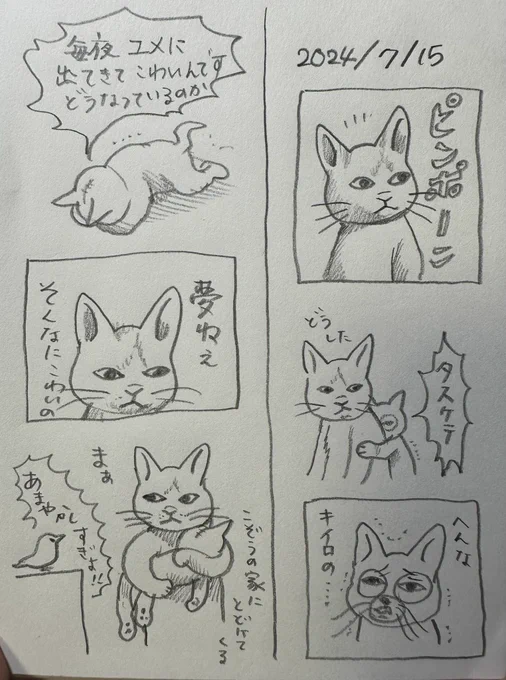 2024/7/15
ピンポーン
どうした
タスケテ
へんな
キイロの…
毎夜 ユメに
出てきて こわいんです
どうなっているのか
……
夢ねぇ
そんなにこわいの
まぁ
こぞうの家に
とどけて
くる
あまやかし
すぎよ!!